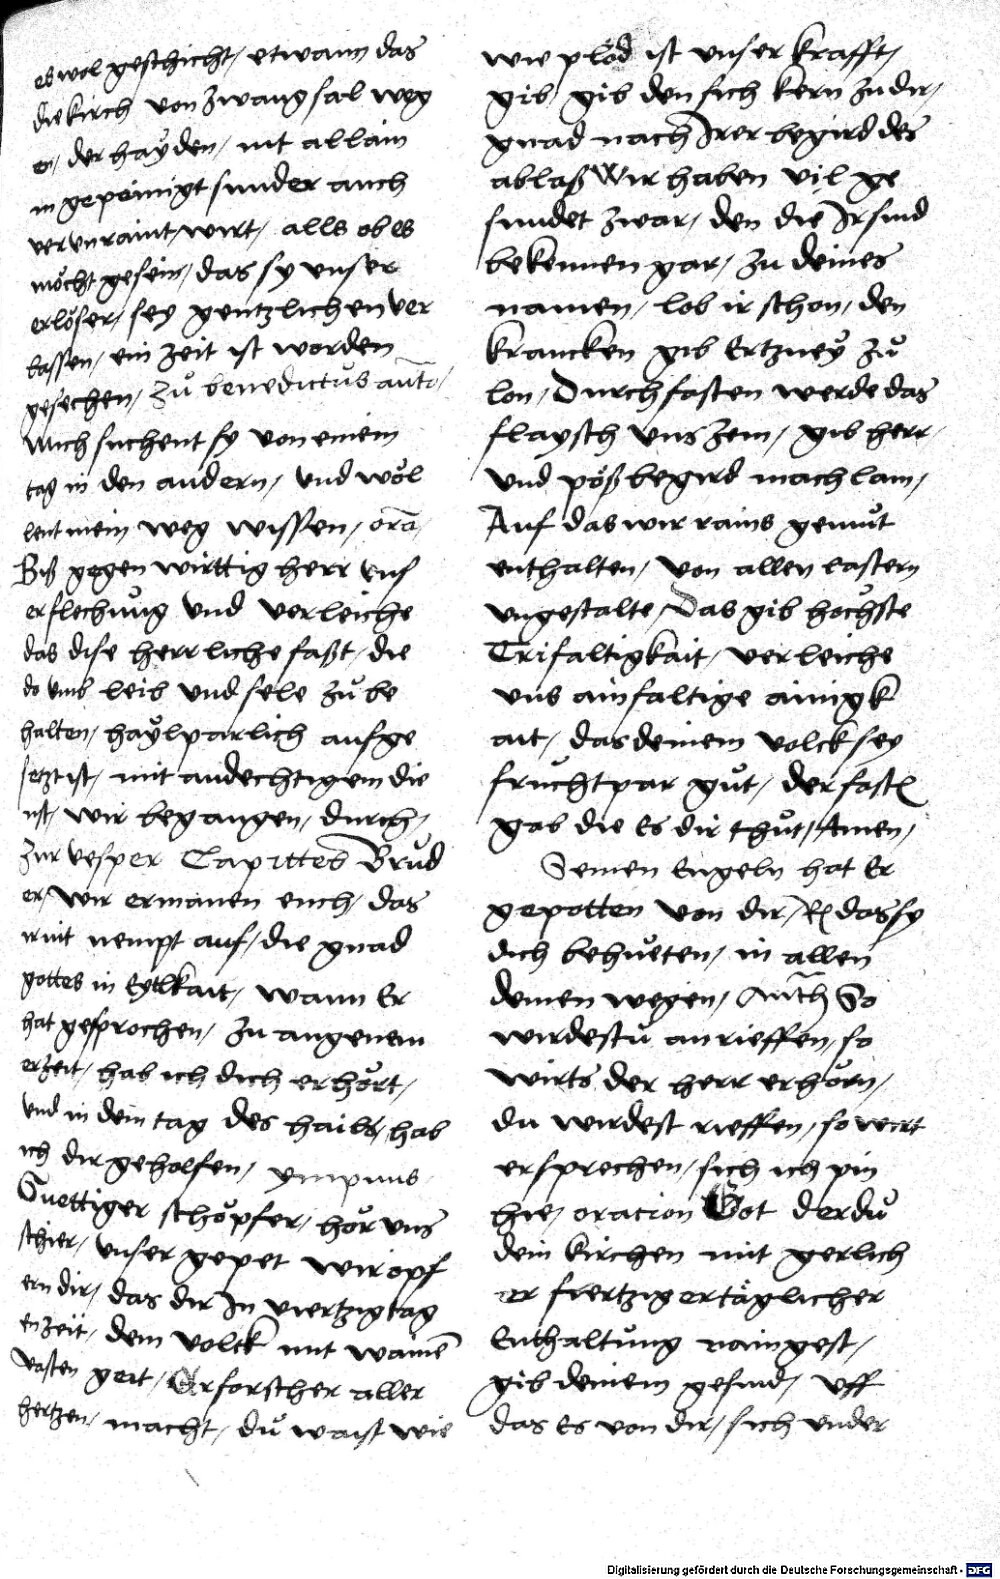 es wol geschicht/ etwann das
die kirch von zwangsal weg
en/ der hayden/ nit allain
in gepeinigt sunder auch
verunraint wirt/ alls ob es
möcht gesein/ das sy unser
erlöser/ sey gentzlichen ver
lassen/ ein zeit ist worden
gesechen/ zů benedictus anto/
Mich suchent sy von einem
tag in den andern/ und wöl
lent mein weg wissen/ ora/
Biß gegen wirttig herr uns
erflechung und verleiche
das dise herrliche faßt/ die
do umb leib und sele zů be
halten/ haylparlich aufge
setzt ist/ mit andechtigem die
nst/ wir begangen/ durch/
zur vesper Capittes Brůd
er/ wir ermanen euch/ das
ir nit nempt auf/ die gnad
gottes in Eytlkait/ wann Er
hat gesprochen/ zu angenem
er zeit/ hab ich dich erhört/
und in dem tag des hails/ hab
ich dir geholfen/ ympnus
Guettiger schöpfer/ hör uns
schier/ unser gepet wir opf
ern dir/ das dir In viertzigtag
en zeit/ dem volck mit
vasten geit/ Erforscher aller
hertzen/ macht/ dů waist wie
wie plöd ist unser krafft/
gib/ gib den sich kern zu dir/
gnad nach Irer begird des
ablaß Wir haben vil ge
sundet zwar/ den die Ir sind
bekennen gar/ zu deines
namen/ lob ir schon/ den
krancken gib Ertzney zů
lon/ Durch fasten werde das
flaysch uns zem/ gib herr/
und pöß begird mach lam/
Auf das wir rains gemüt
enthalten/ von allen lastern
ungestalte/ Das gib hochste
Trifaltigkait/ verleiche
uns ainfaltige ainigk
ait/ das deinem volck sey
fruchtpar gůt/ der fasten
gab die es dir thůt/ Amen/
Seinen Engeln hat Er
gepotten von dir/ R das sy
dich behüeten/ in allen
deinen wegen/ Anth So
wirdestu anrieffen/ so
wirts der herr erhörn/
du wirdest rieffen/ so wirt
er sprechen/ sich ich pin
hie/ oracion Got der dů
dein kirchen mit gerlich
er fiertzigertäglicher
Enthaltung rainigest/
gib deinem gesind/ uff
das es von dir/ sich under
Digitalisierung gefördert durch die Deutsche Forschungsgemeinschaft - DFG